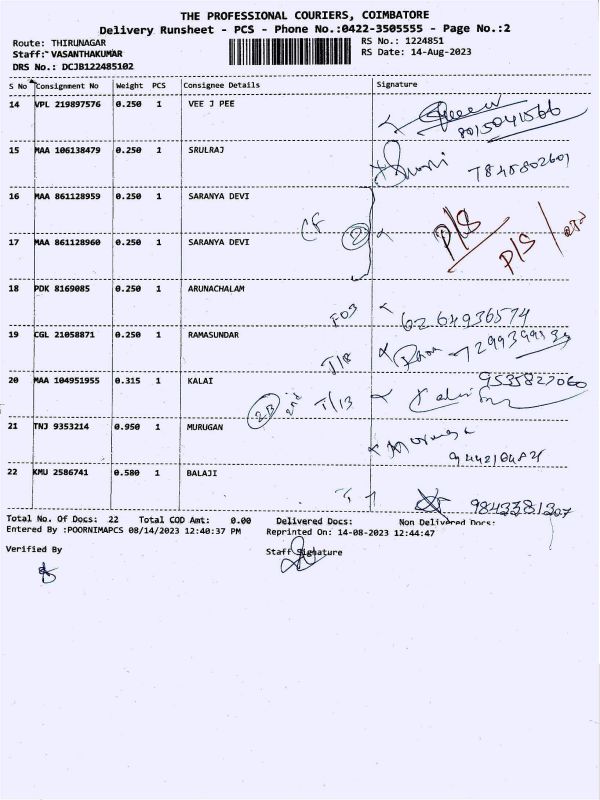 THE PROFESSIONAL COURIERS, COIMBATORE
Delivery Runsheet - PCS - Phone No.:0422-3505555 - Page No.:2
Route: THIRUNAGAR
RS No.: 1224851
Staff: VASANTHAKUMAR
RS Date: 14-Aug-2023
DRS No.: DCJB122485102
S No Consignment No Weight PCS Consignee Details Signature
14 VPL 219897576 0.250 1 VEE J PEE
8015041566
15 MAA 106138479 0.250 1 SRULRAJ
7845802601
16 MAA 861128959 0.250 1 SARANYA DEVI
P/S
17 MAA 861128960 0.250 1 SARANYA DEVI
CF 2 P/S
18 PDK 8169085 0.250 1 ARUNACHALAM
F03 6264936574
19 CGL 21058871 0.250 1 RAMASUNDAR
T/8
20 MAA 104951955 0.315 1 KALAI
9535827060
2B 2nd T/13
21 TNJ 9353214 0.950 1 MURUGAN
22 KMU 2586741 0.580 1 BALAJI
9843381207
Total No. Of Docs: 22 Total COD Amt: 0.00 Delivered Docs: Non Delivered Docs:
Entered By :POORNIMAPCS 08/14/2023 12:40:37 PM Reprinted On: 14-08-2023 12:44:47
Verified By Staff Signature